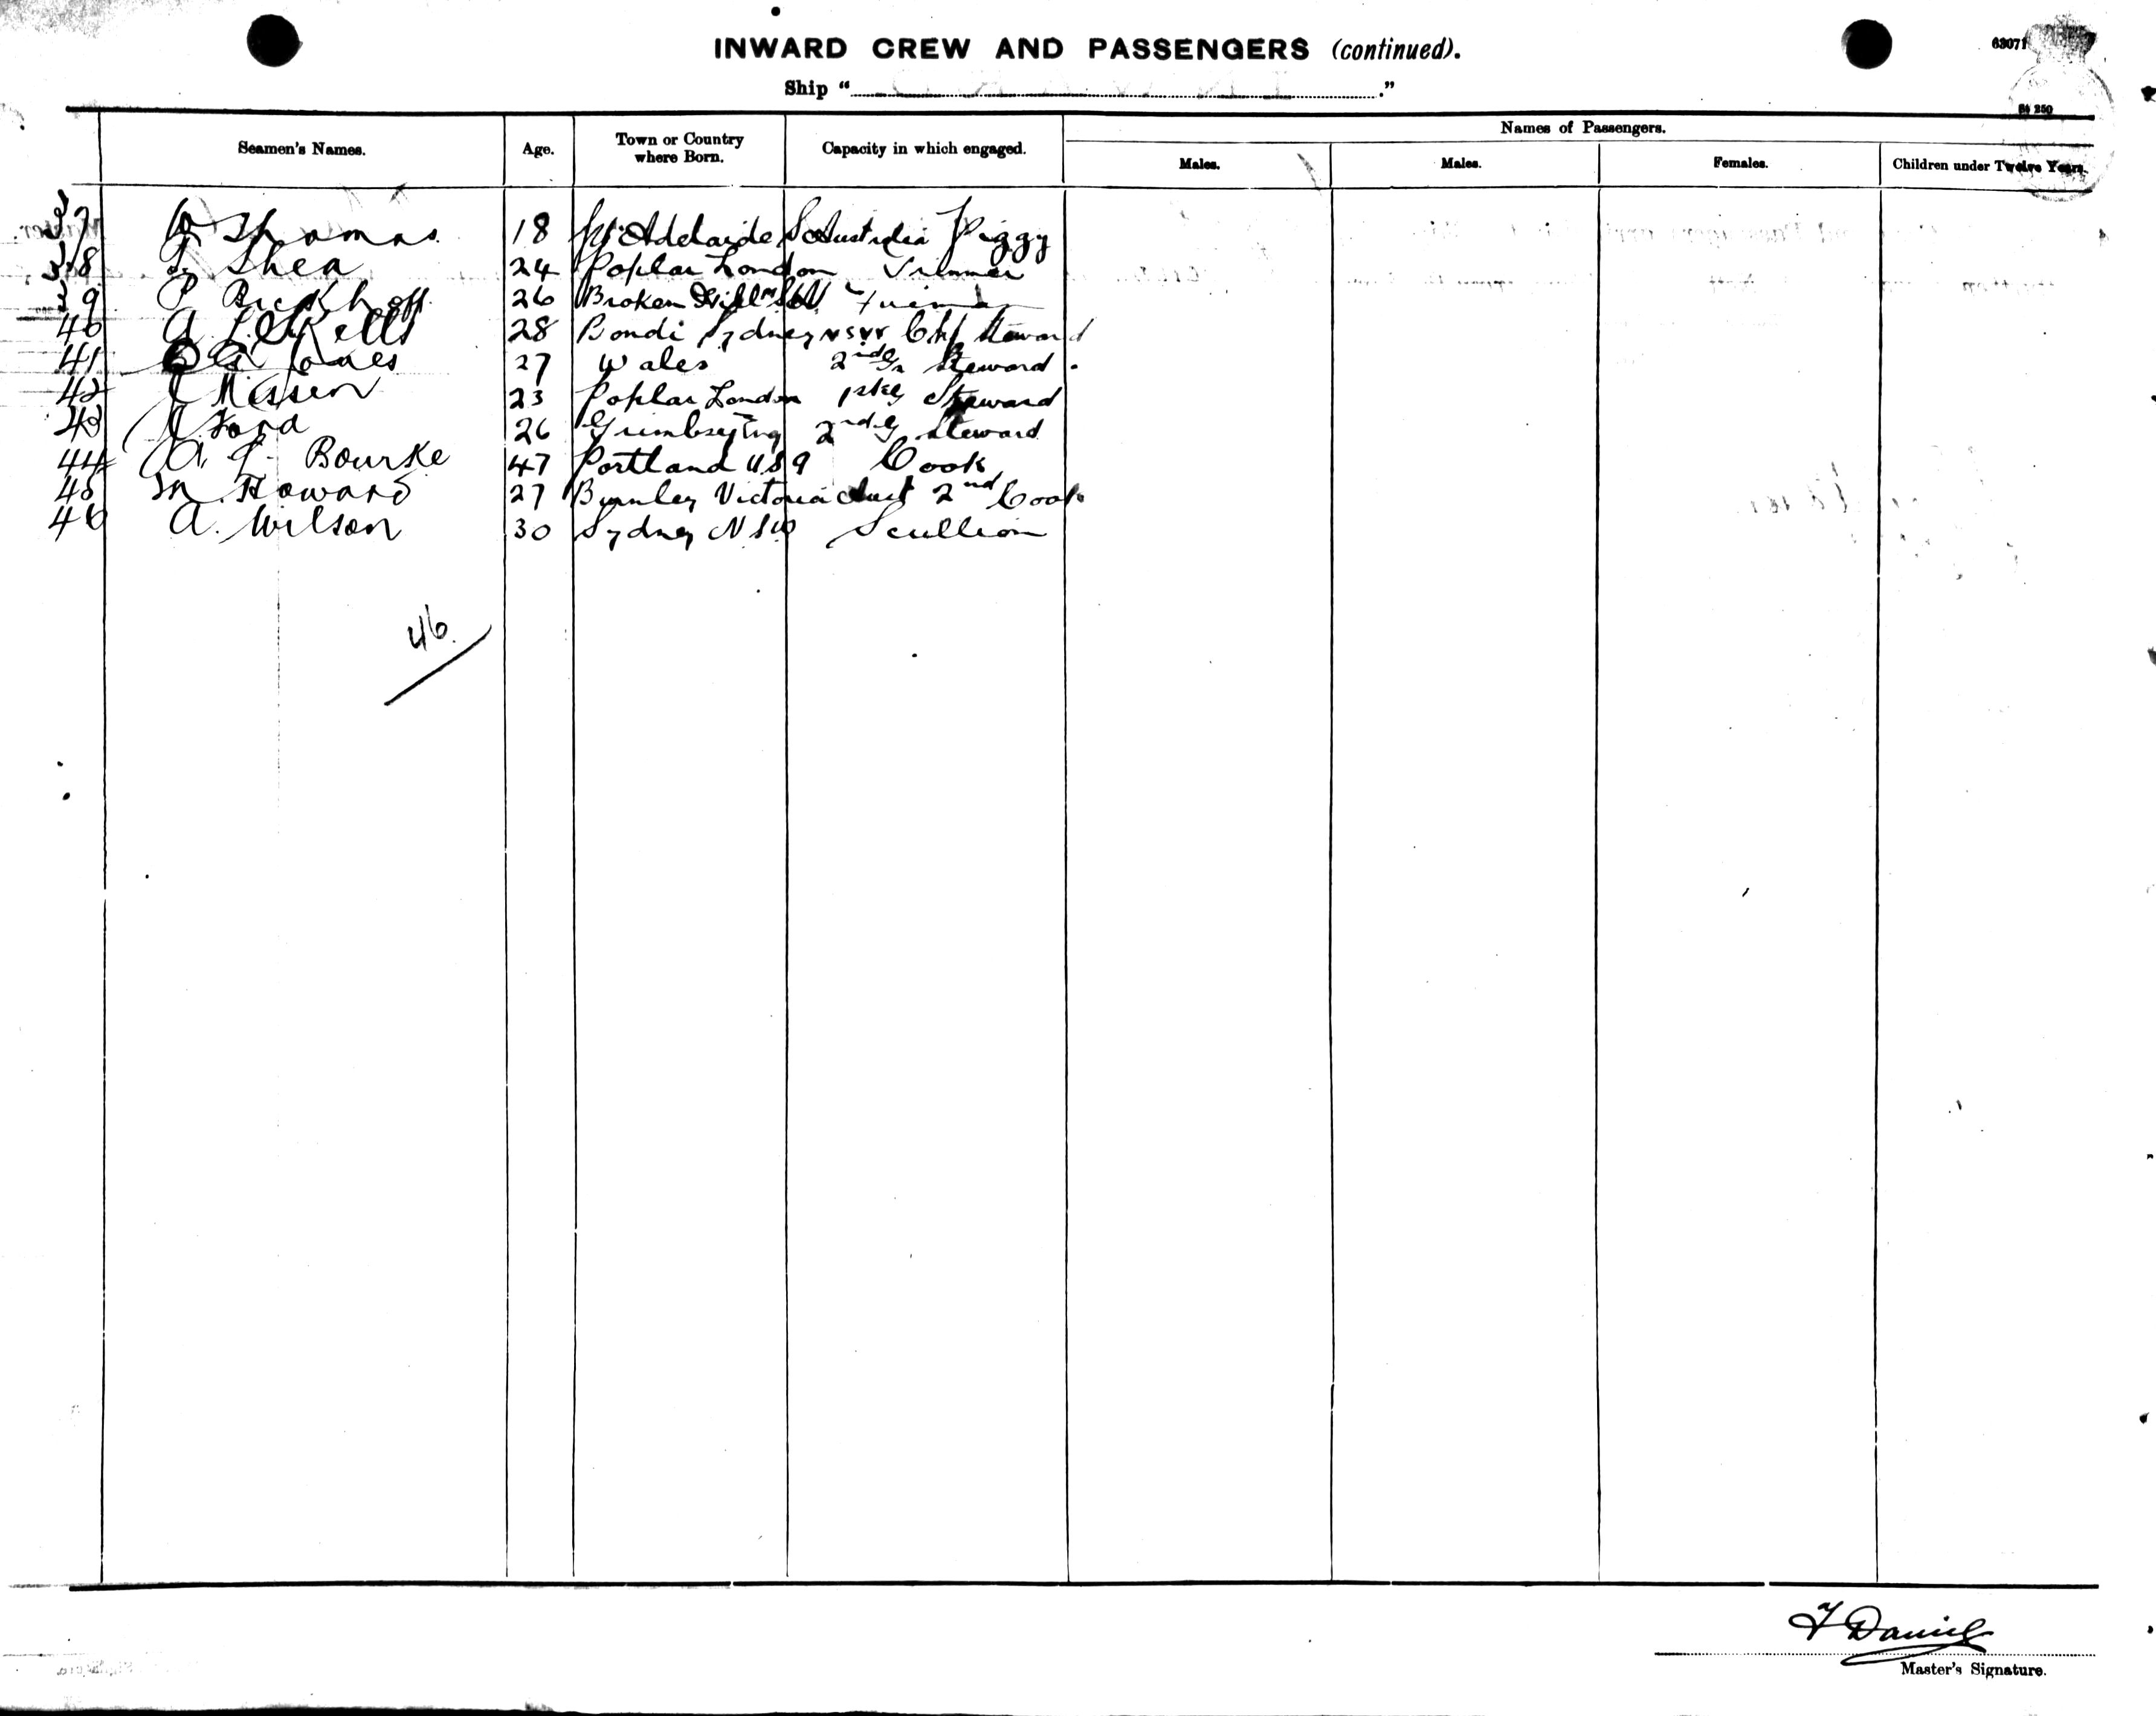 INWARD CREW AND PASSENGERS (continued).
63071
Ship “ .”
St 250
Names of Passengers.
Seamen's Names. Age. Town or Country where Born. Capacity in which engaged. Males. Males. Females. Children under Twelve Years.
37 W Thomas 18 Pt Adelaide S Australia Piggy
38 Shea 24 Poplar London Trimmer
39 P 26 Broken Hill NSW
40 A 28 Bondi Sydney NSW Chf Steward
41 Jones 27 Wales 2nd Steward
42 Missen 23 Poplar London 1st Steward
43 Ford 26 Grimbsey Eng 2nd Steward
44 A. Bourke 47 Portland USA Cook
45 M. Howard 27 Burnley Victoria Aust 2nd Cook
46 A. Wilson 30 Sydney NSW Scullion
46
F Daniel
Master's Signature.